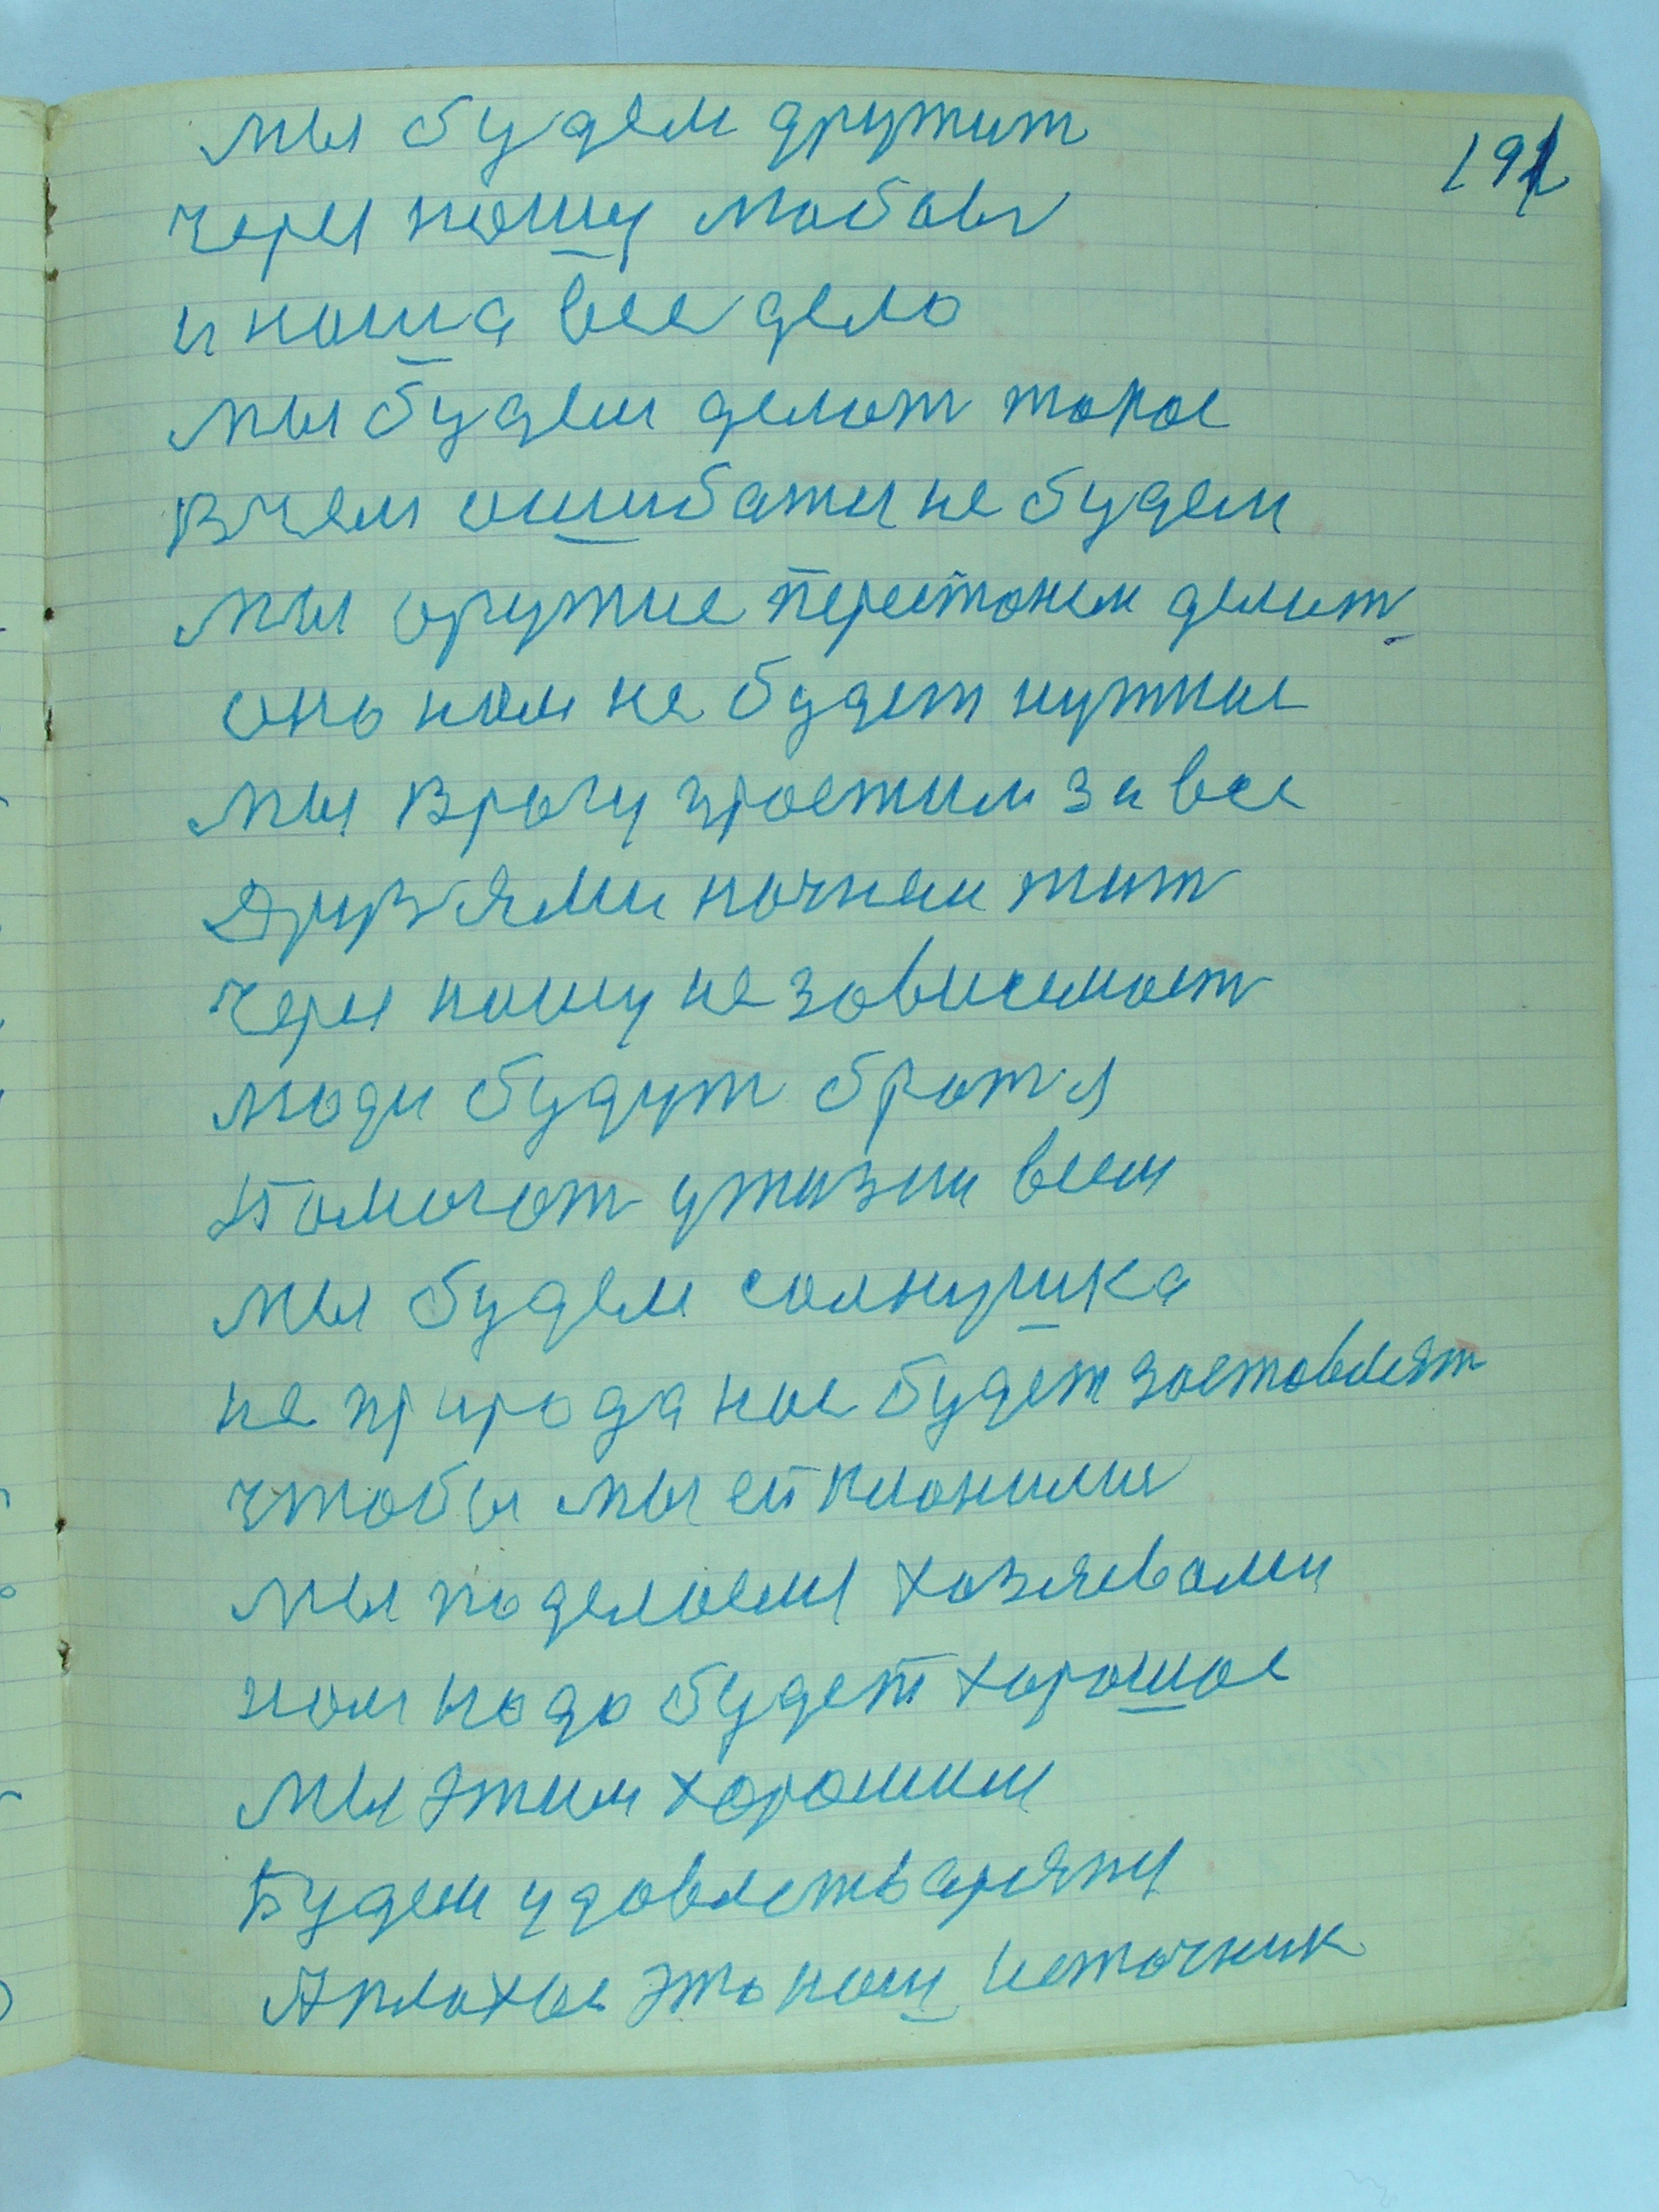 191
мы будем дружит
через нашу любовь
и наша все дело
мы будем делат такое
В чем ошибаться не будем
мы оружие перестанем делат
оно нам не будет нужное
мы Врагу простим за все
Друзями начнем жит
через нашу независемаст
люди будут братя
Помогат у жизни всем
мы будем солнушка
не природа нас будет заставлят
чтобы мы ей клонилися
мы поделаемся хазяевами
нам надо будет хорошое
мы этим хорошим
Будем удовлетварятся
А плохое это наш источник